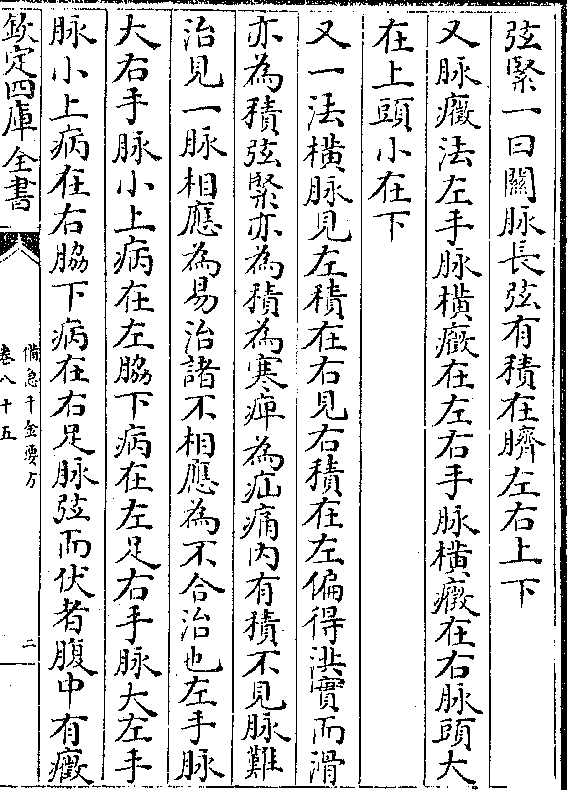 弦緊一曰關脉長弦有積在臍左右上下
又脉癥法左手脉橫癥在左右手脉橫癥在右脉頭大
在上頭小在下
又一法橫脉見左積在右見右積在左偏得洪實而滑
亦為積弦緊亦為積為寒痺為疝痛内有積不見脉難
治見一脉相應為易治諸不相應為不合治也左手脉
大右手脉小上病在左脇下病在左足右手脉大左手
脉小上病在右脇下病在右足脉弦而伏者腹中有癥
欽定四庫全書
備急千金要方
卷八十五
二